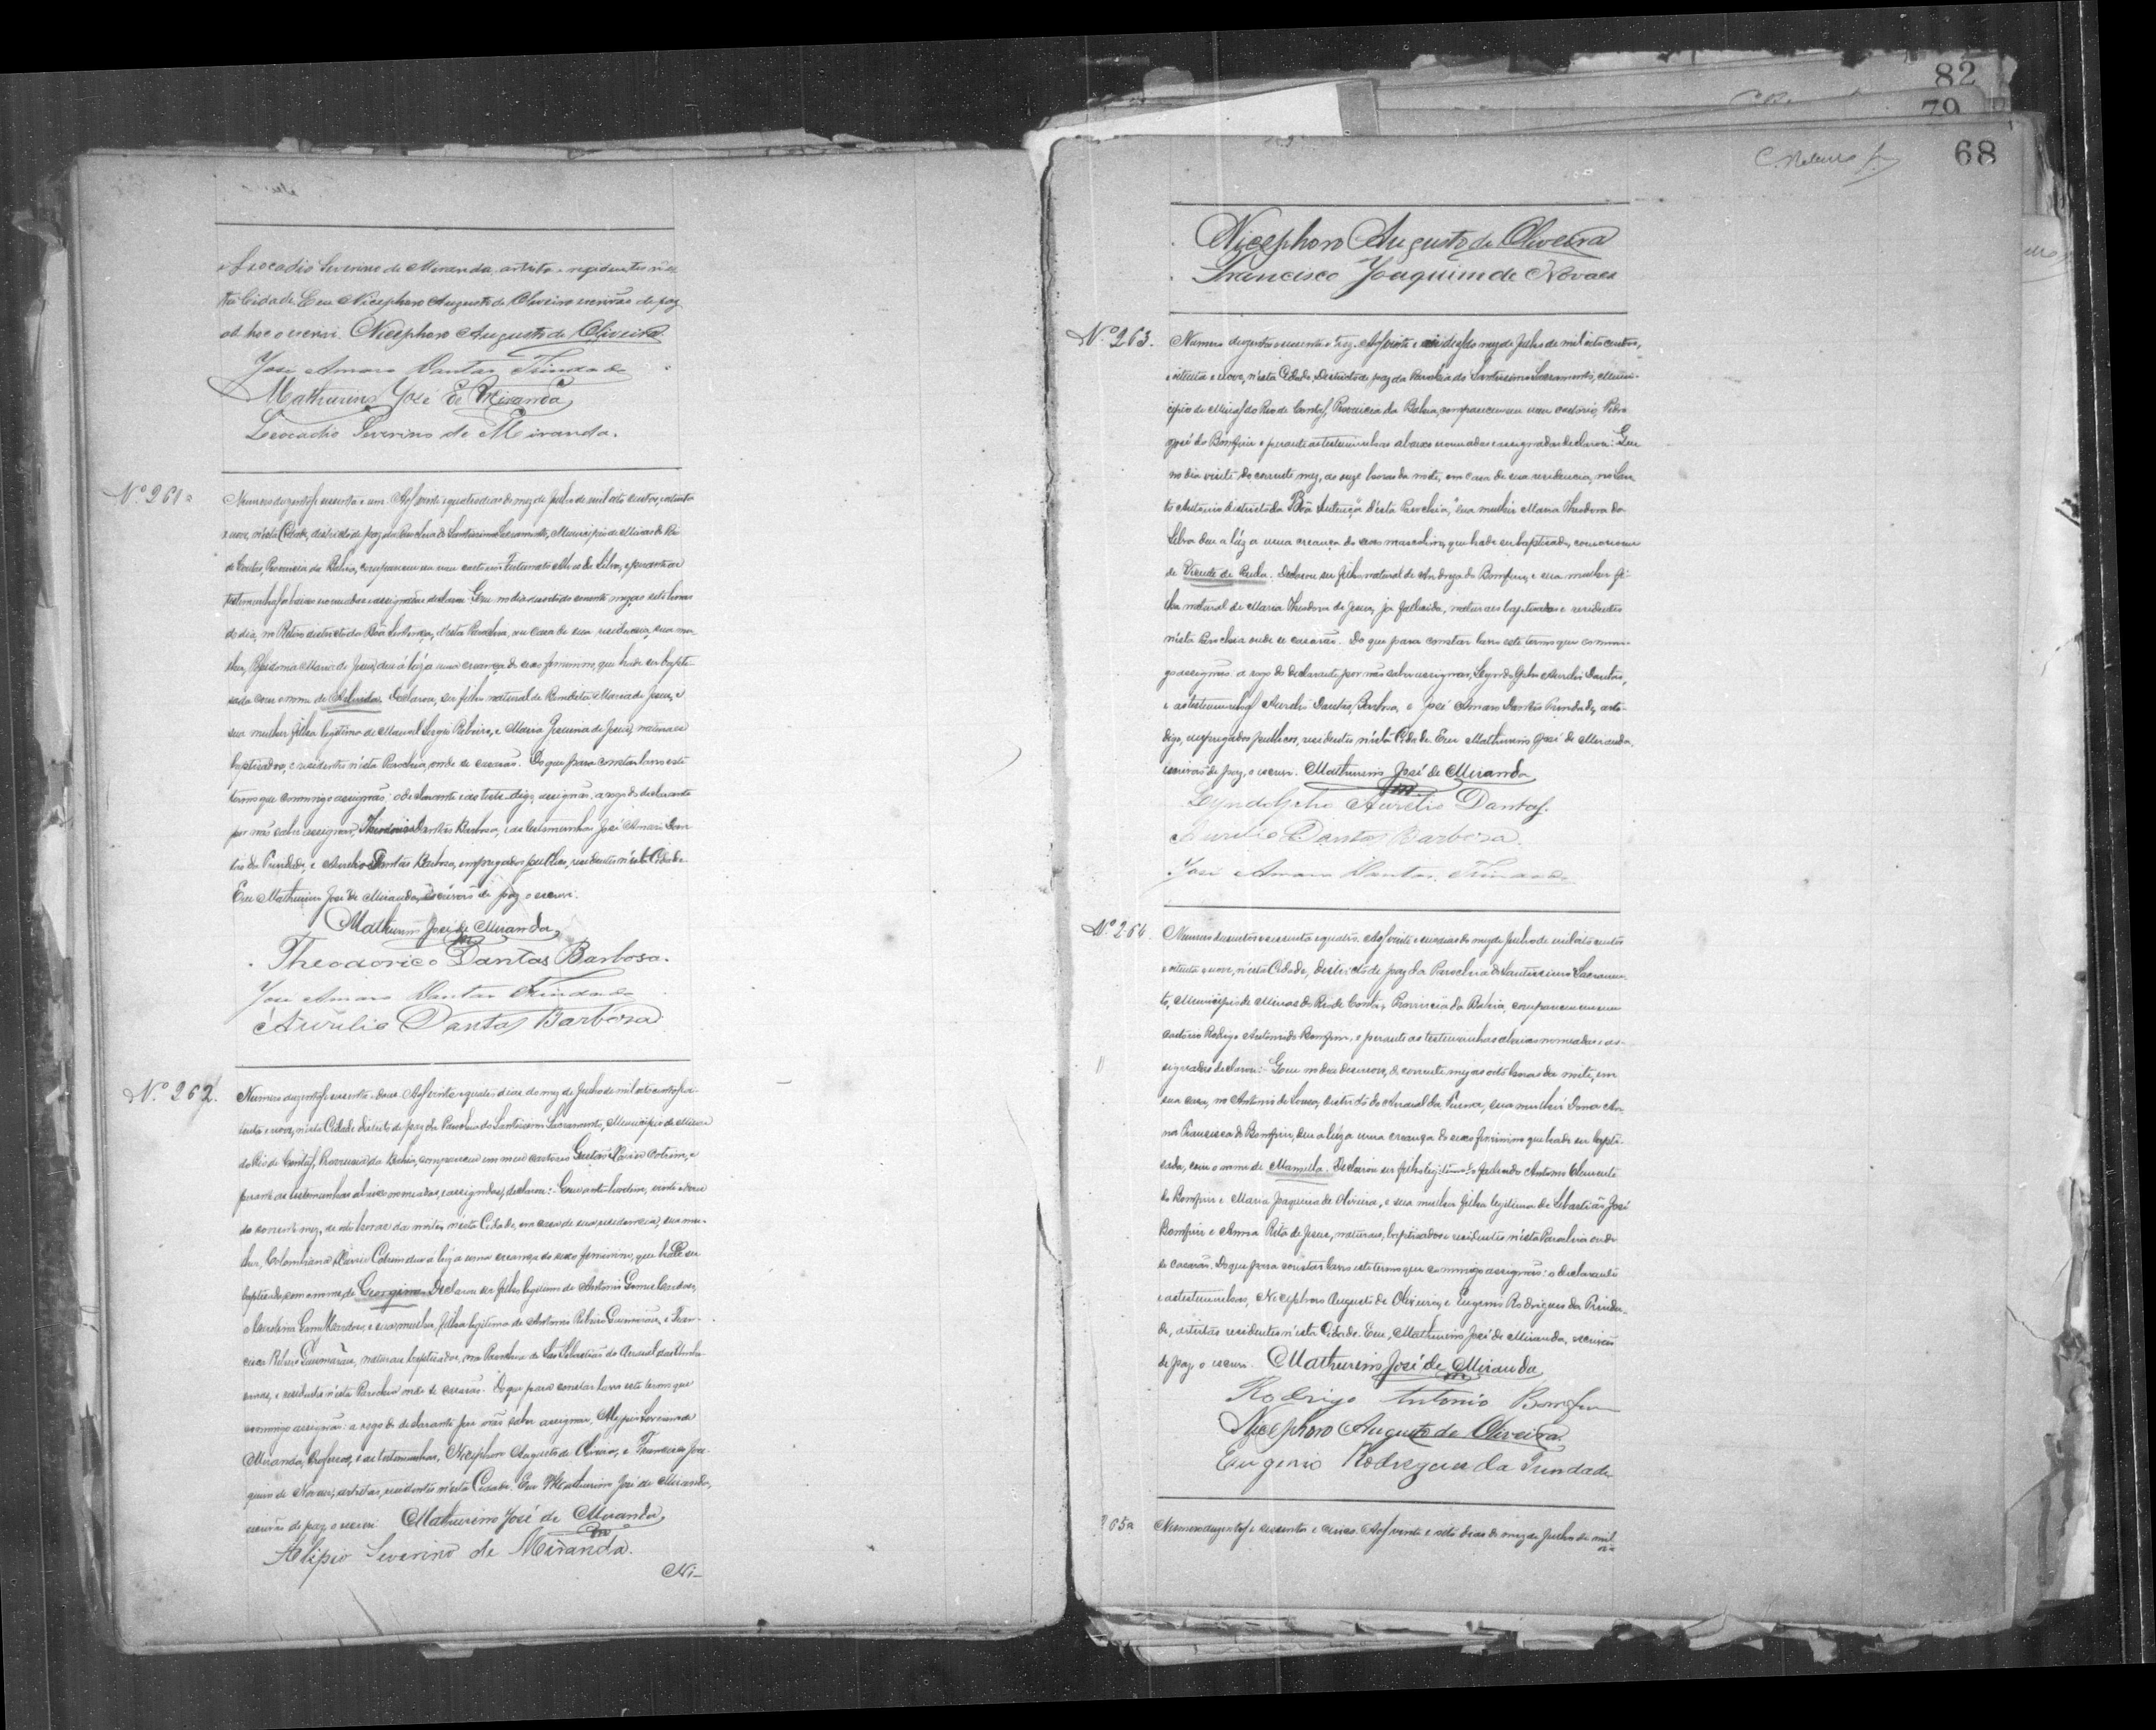 e Leocadio Severino de Miranda, artista e residentes nes
ta Cidade. Eu Nicephoro Augusto de Oliveira escrivão de paz
ad hoc o escrevi. Nicephoro Augusto de Oliveira
José Amaro Dantas Trindade
Mathurino José de Miranda
Leocadio Severino de Miranda.
Nº 261
Numero duzentos sessenta e um. Aos vinte e quatro dias do mez de Julho de mil oito centos, e oitenta
e nove, n'esta Cidade, districto de paz da Parochia do Santissimo Sacramento, Municipio de Minas do Rio
de Contas, Provincia da Bahia, compareceu em meu cartorio Fortunato Alves da Silva, e perante as
testemunhas abaixo nomeadas e assignadas declarou: Que no dia do corrente mez, as sete horas
do dia, no Retiro districto da Bôa Sentença, d'esta Parochia, em casa de sua residencia, sua mu-
lher, Maria de Jesus, deu á luz a uma creança do sexo feminino, que hade ser bapti-
sada com o nome de Declarou, ser filho natural de Benedicta Maria de Jesus, e
sua mulher filha legitima de Manoel Sergio Ribeiro, e Maria de Jesus, naturaes
baptisados, e residentes n'esta Parochia, onde se casarão. Do que para constar lavro este
termo que commigo assignão: o declarante e as teste-digo, assignão, a rogo do declarante
por não saber assignar, Theodorico Dantas Barbosa, e as testemunhas José Amaro Dan-
tas da Trindade, e Aurelio Dantas Barbosa, empregados publicos, residentes n'esta Cidade.
Eu Mathurino José de Miranda, escrivão de paz o escrevi.
Mathurino José de Miranda
Theodorico Dantas Barbosa.
José Amaro Dantas Trindade
Aurelio Dantas Barbosa.
Nº 262.
Numero duzentos sessenta e dous. Aos vinte e quatro dias do mez de Julho de mil oito centos, oi-
tenta e nove, n'esta Cidade districto de paz da Parochia do Santissimo Sacramento, Municipio de Minas
do Rio de Contas, Provincia da Bahia, compareceu em meu cartorio Cotrim, e
perante as testemunhas abaixo nomeadas, e assignadas, declarou: Que vinte e dous
do corrente mez, as oito horas da noite, n'esta Cidade, em casa de sua residencia, sua mu-
lher, Colombiana Cotrim deu a luz a uma creança do sexo feminino, que hade ser
baptisada, com o nome de Georgina. Declarou ser filho legitimo de Antonio Gomes Cardoso,
e e sua mulher, filha legitima de Antonio Ribeiro Guimarães, e Fran-
cisca Ribeiro Guimarães, naturaes baptisados, na Parochia de São Sebastião do Arraial das
e residentes n'esta Parochia onde se casarão. Do que para constar lavro este termo que
commigo assignão: a rogo do declarante por não saber assignar, Alipio Severino de
Miranda, Professor, e as testemunhas, Nicephoro Augusto de Oliveira, e Francisco Joa-
quim de Novaes, artistas, residentes n'esta Cidade. Eu Mathurino José de Miranda,
escrivão de paz, o escrevi. Mathurino José de Miranda
Alipio Severino de Miranda.
Ni-
82
79
68
Nicephoro Augusto de Oliveira
Francisco Joaquim de Novaes
Nº 263.
Numero duzentos e sessenta e trez. Aos vinte e do mez de Julho de mil oito centos,
e oitenta e nove, n'esta Cidade, Districto de paz da Parochia do Santissimo Sacramento, Muni-
cipio de Minas do Rio de Contas, Provincia da Bahia, compareceu em meu cartorio, Pedro
José do Bomfim e perante as testemunhas abaixo nomeadas e assignadas declarou: Que
no dia vinte, do corrente mez, as onze horas da noite, em casa de sua residencia, no San-
to Antonio districto da "Bôa Sentença" d'esta Parochia, sua mulher Maria Theodora da
Silva deu a lúz a uma creança do sexo masculino, que hade ser baptisado, com o nome
de Vicente de Paula. Declarou ser filho natural de do Bomfim, e sua mulher fi-
lha natural de Maria Theodora de Jesus, já fallecida, naturaes baptisados e residentes
n'esta Parochia onde se casarão. Do que para constar lavro este termo que commi-
go assignão: a rogo do declarante por não saber assignar, Lyndolpho Aurelio Dantas,
e as testemunhas Aurelio Dantas Barbosa, e José Amaro Dantas Trindade, arti-
digo, empregados publicos, residentes n'esta Cidade. Eu Mathurino José de Miranda,
escrivão de paz, o escrevi. Mathurino José de Miranda
Lyndolpho Aurelio Dantas.
Aurelio Dantas Barbosa.
José Amaro Dantas Trindade
Nº 264.
Numero duzentos e sessenta e quatro. Aos vinte e dias do mez de Julho de mil oito centos
e oitenta e nove, n'esta Cidade, Districto de paz da Parochia do Santissimo Sacramen-
to, Municipio de Minas do Rio de Contas, Provincia da Bahia, compareceu em meu
cartorio Rodrigo Antonio do Bomfim, e perante as testemunhas abaixo nomeadas e as-
signadas declarou: Que no dia do corrente mez, as oito horas da noite, em
sua casa, no Antonio de Souza, districto do Arraial da Furna, sua mulher Dona An-
na Francisca do Bomfim, deu a lúz a uma creança do sexo feminino que hade ser bapti-
sada, com o nome de Manuella. Declarou ser filho legitimo do finado Antonio Clemente
do Bomfim e Maria Joaquina de Oliveira, e sua mulher filha legitima de Sebastião José
Bomfim e Anna Rita de Jesus, naturaes, baptisados e residentes n'esta Parochia onde
se casarão. Do que para constar lavro este termo que commigo assignão: o declarante
e as testemunhas, Nicephoro Augusto de Oliveira, e Eugenio Rodrigues da Trinda-
de, artistas residentes n'esta Cidade. Eu, Mathurino José de Miranda, escrivão
de paz, o escrevi. Mathurino José de Miranda
Rodrigo Antonio Bomfim
Nicephoro Augusto de Oliveira.
Eugenio Rodrigues da Trindade
265
Numero duzentos e sessenta e cinco. Aos vinte e sete dias do mez de Julho de mil